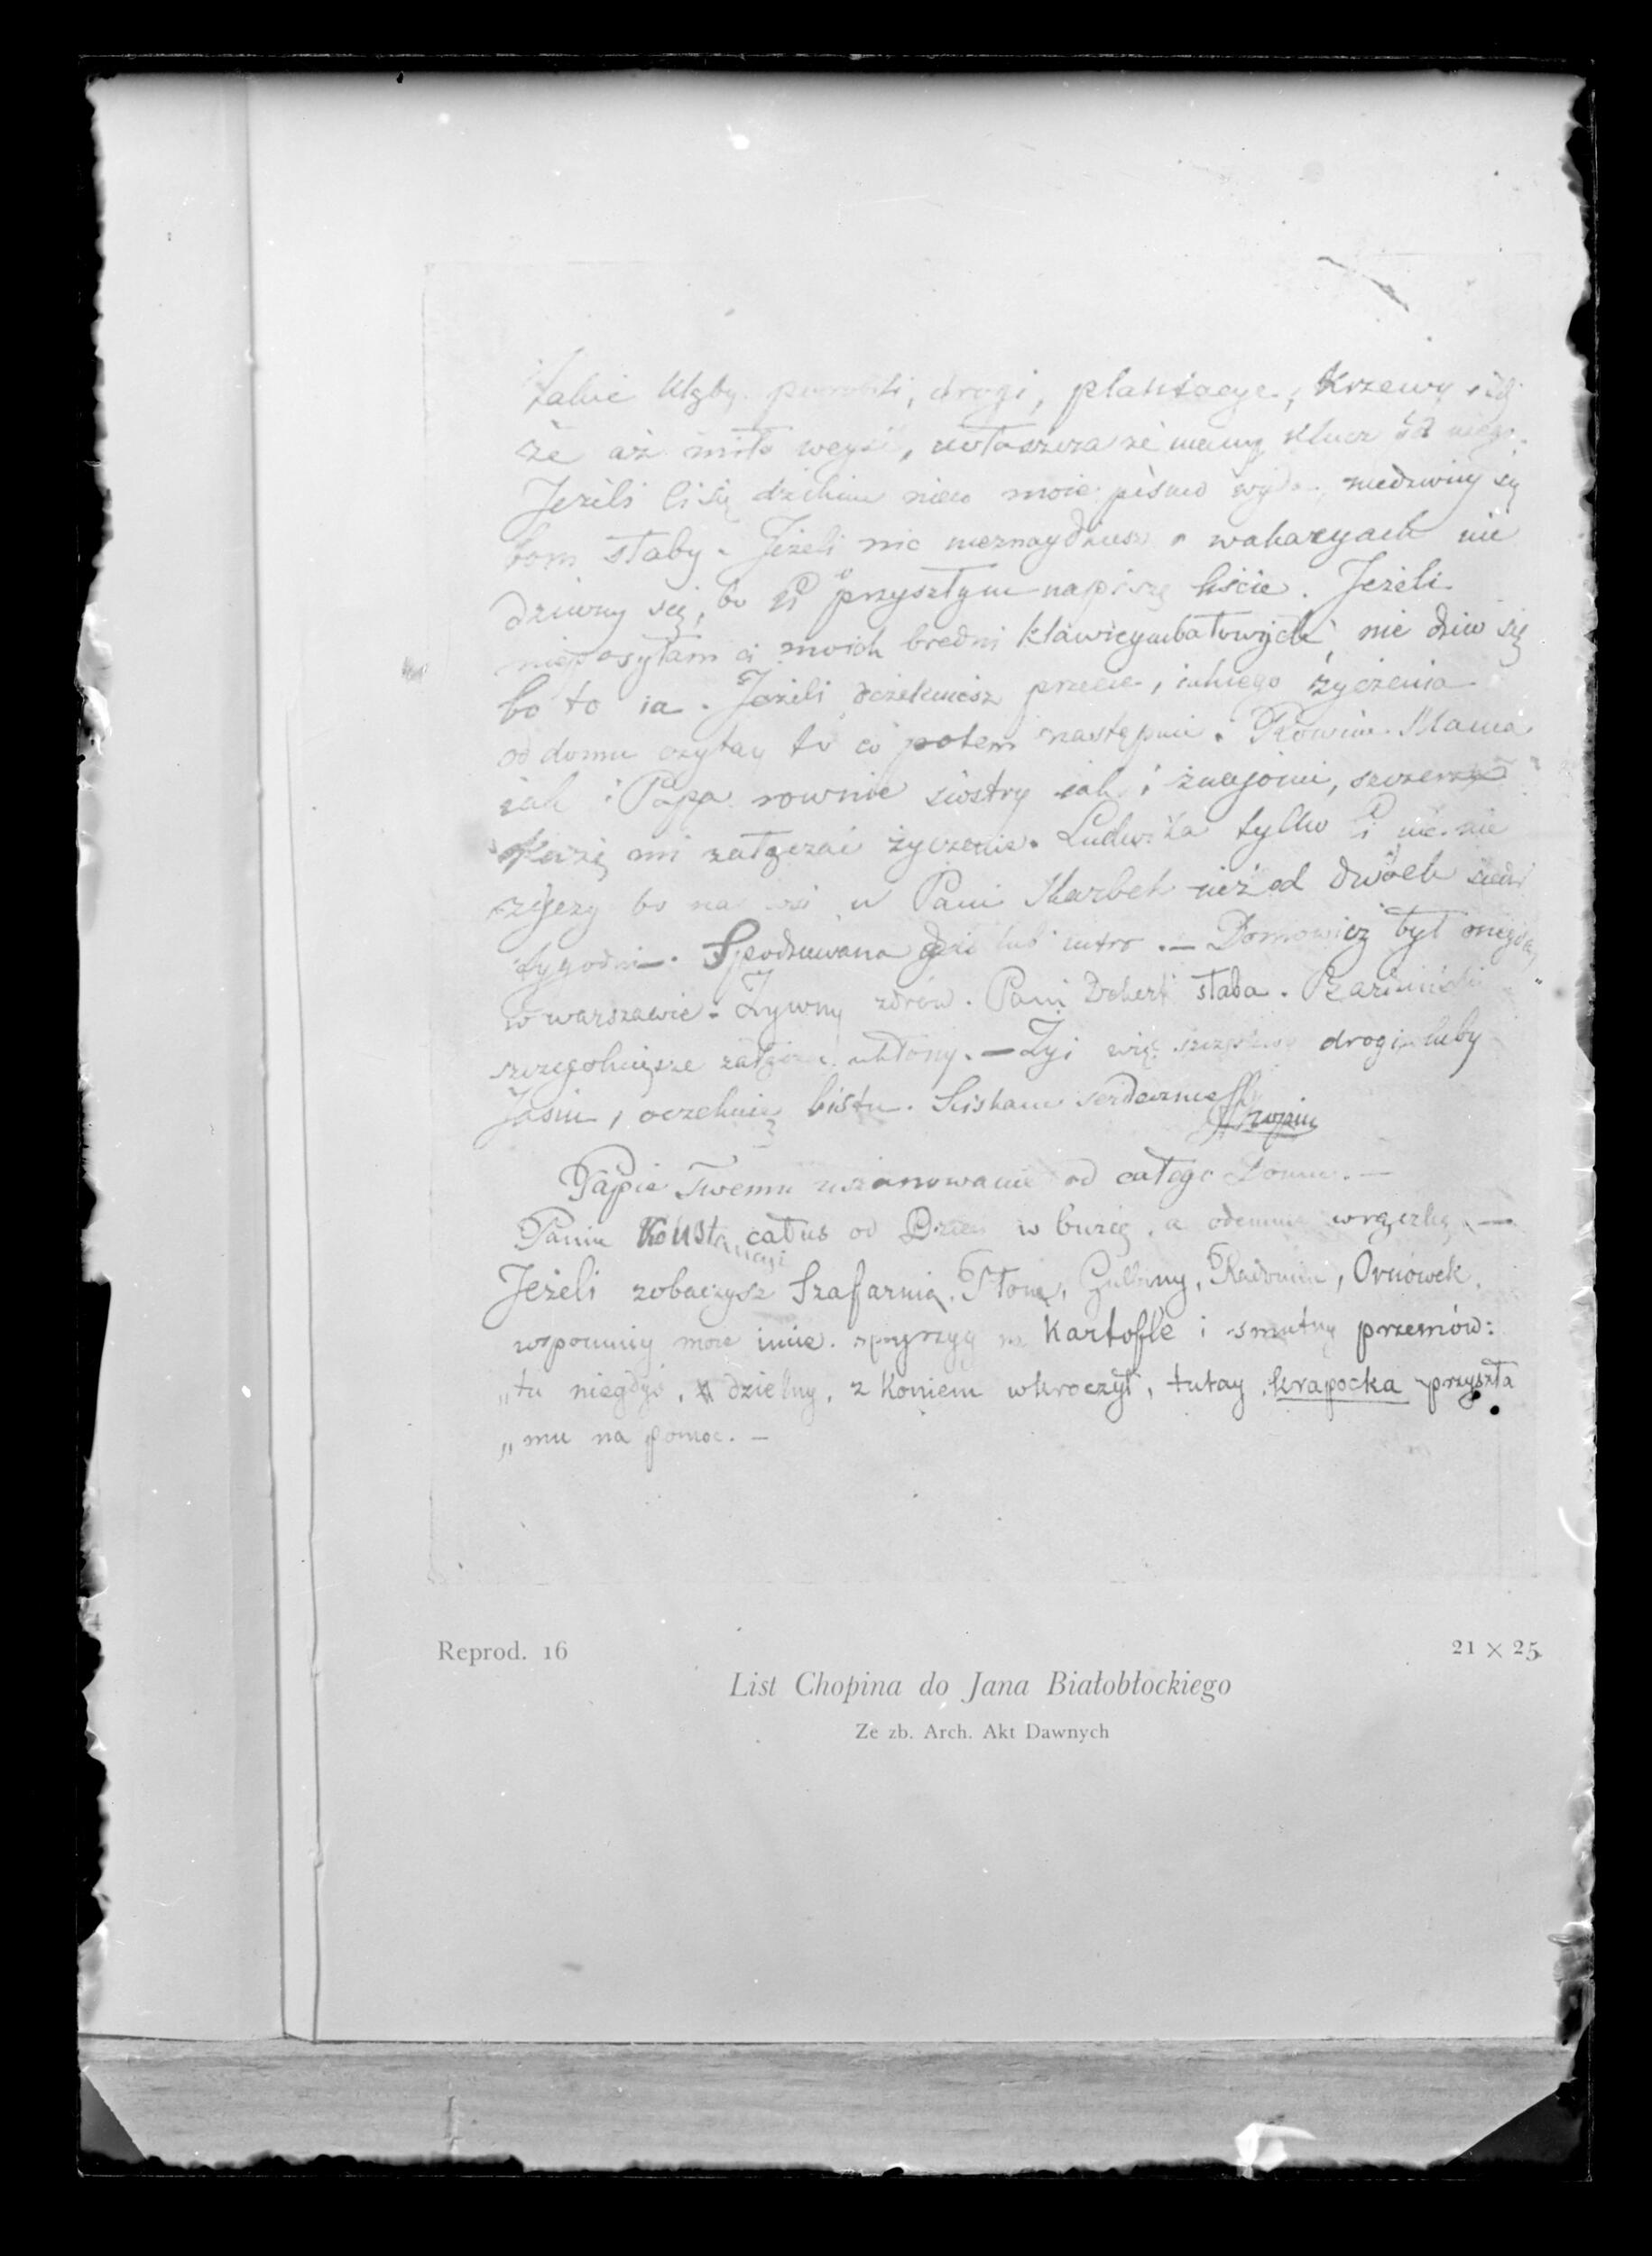 takie klęby porobili, drogi, plantacye, krzewy
że aż miło weyść, zwłaszcza że mamy klucz od niego.
Jeżeli Ci się dzikim nieco moie pismo wyda, niedziwuy się
bom słaby. Jeżeli nic nieznaydziesz o wakacyach nie
dziwuy się, bo w przyszłym napiszę liście. Jeżeli
nieposyłam ci moich bredni klawicymbałowych, nie dziw się
bo to ia. Jeżeli oczekuiesz przecie, iakiego życzenia
od domu czytay to co potem następuie. Rownie Mama
iak i Papa rownie siostry iak i znajomi, szczere
każą mi załączać życzenie. Ludwika tylko Ci nic nie
życzy bo na wsi u Pani Skarbek już od dwóch
tygodni. Spodziewana dziś lub iutro. — Domowicz był onegday
w warszawie. Żywny zdrów. Pani Dekert słaba.
szczegolnieysze załącza ukłony. — Żyi więc szczęśliwy drogi luby
Jasiu, oczekuię listu. Sciskam serdecznie
FF Szopin
Papie Twemu uszanowanie od całego Domu. —
Pannie Konstancyi całus od Dzieci w buzię, a odemnie w rączkę. —
Jeżeli zobaczysz Szafarnią, Płone, Gulbiny, Radomin, Ornówek,
wspomniy moie imie. spoyrzyy na kartofle i smutny przemów:
„tu niegdyś, dzielny, z koniem wkroczył, tutay krapocka przyszła
„mu na pomoc. —
Reprod. 16
21 × 25
List Chopina do Jana Białobłockiego
Ze zb. Arch. Akt Dawnych